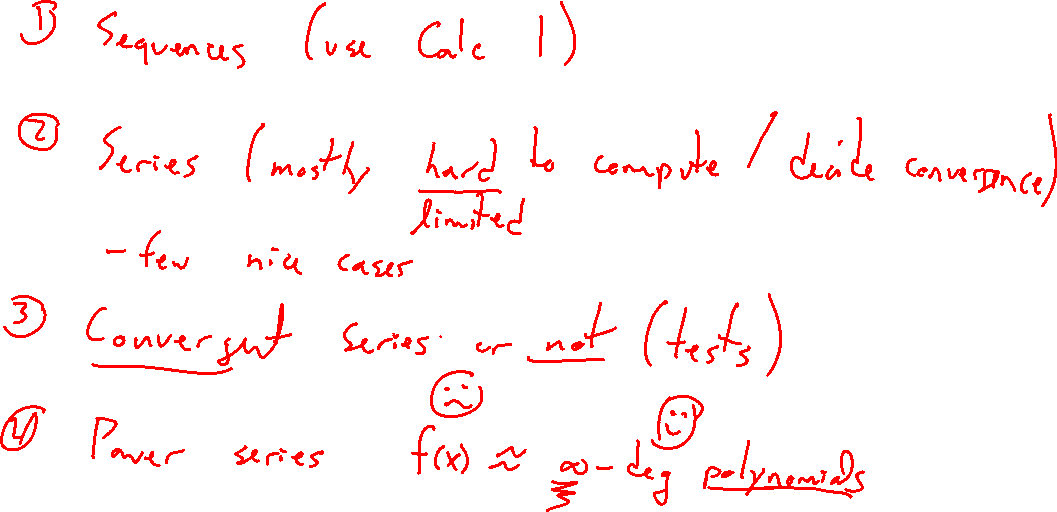 ① Sequences (use Calc 1)
② Series (mostly hard to compute / decide convergence)
limited
- few nice cases
③ Convergent series or not (tests)
④ Power series f(x) ≈ ∞-deg polynomials